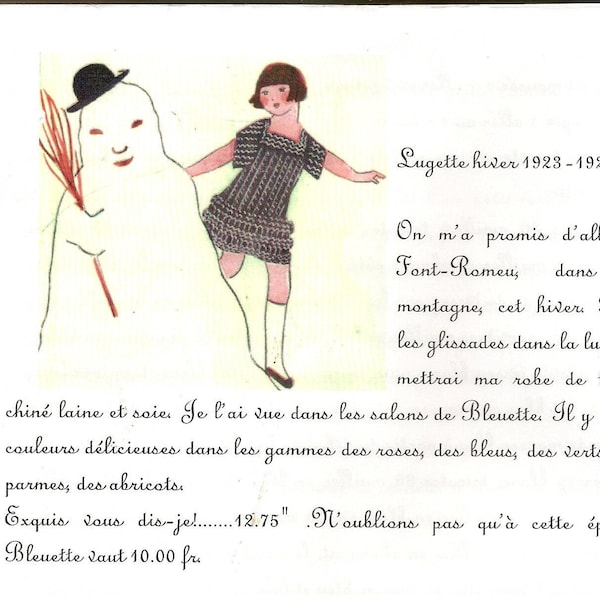 Lugette hiver 1923-192
On m'a promis d'all
Font-Romeu, dans
montagne, cet hiver.
les glissades dans la lu
mettrai ma robe de
chiné laine et soie. Je l'ai vue dans les salons de Bleuette. Il y
couleurs délicieuses dans les gammes des roses, des bleus, des verts
parmes, des abricots.
Exquis vous dis-je!.......12.75" .N'oublions pas qu'à cette ép
Bleuette vaut 10.00 fr.